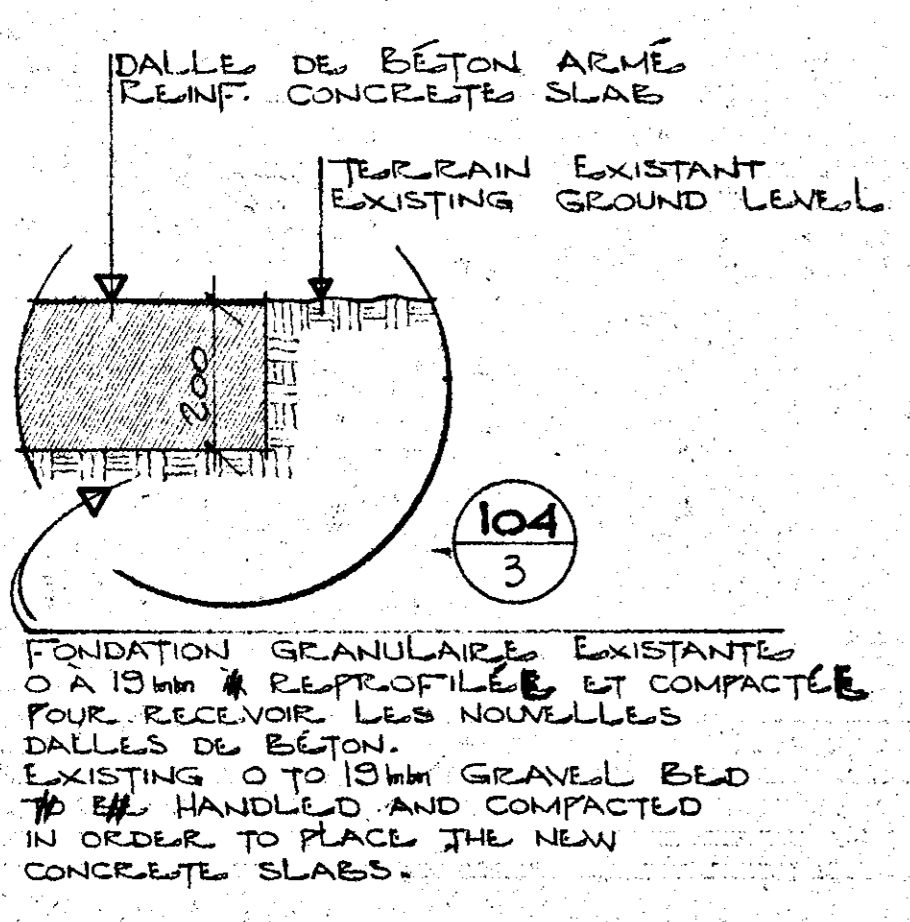 DALLE DE BÉTON ARMÉ
REINF. CONCRETE SLAB
TERRAIN EXISTANT
EXISTING GROUND LEVEL
200
104
3
FONDATION GRANULAIRE EXISTANTE
0 À 19mm REPROFILÉE ET COMPACTÉE
POUR RECEVOIR LES NOUVELLES
DALLES DE BÉTON.
EXISTING 0 TO 19mm GRAVEL BED
HANDLED AND COMPACTED
IN ORDER TO PLACE THE NEW
CONCRETE SLABS.